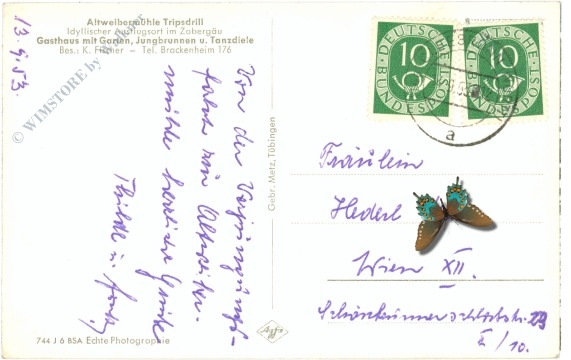 Altweibermühle Tripsdrill
Idyllischer Ausflugsort im Zabergäu
Gasthaus mit Garten, Jungbrunnen u. Tanzdiele
Bes.: K. Fischer – Tel. Brackenheim 176
13.9.53.
© WIMSTORE by
Von der Verjüngungs-
fahrt zur Altweiber-
mühle herzliche Grüße
Gebr. Metz, Tübingen
DEUTSCHE BUNDESPOST
10
DEUTSCHE BUNDESPOST
10
a
Fräulein
Hederl
Wien XII.
Schönbrunner Schloßstr. 29
I/10.
Agfa
744 J 6 BSA Echte Photographie